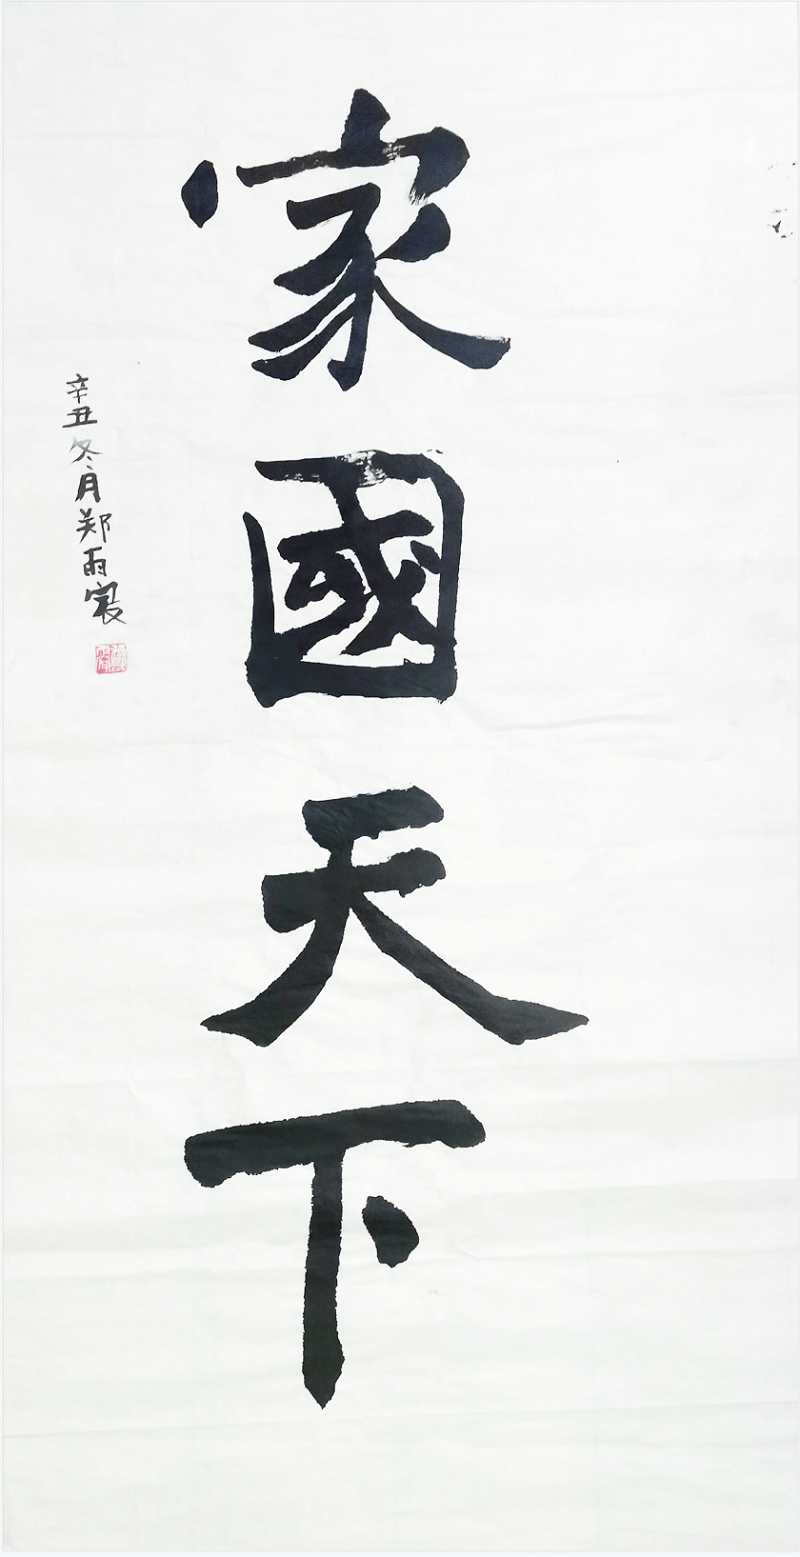 家國天下
辛丑冬月郑雨裳